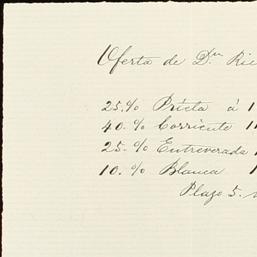 Oferta de Dn Ric
25.% Prieta á 1
40.% Corriente 1
25.% Entreverada
10.% Blanca 1
Plazo 5.